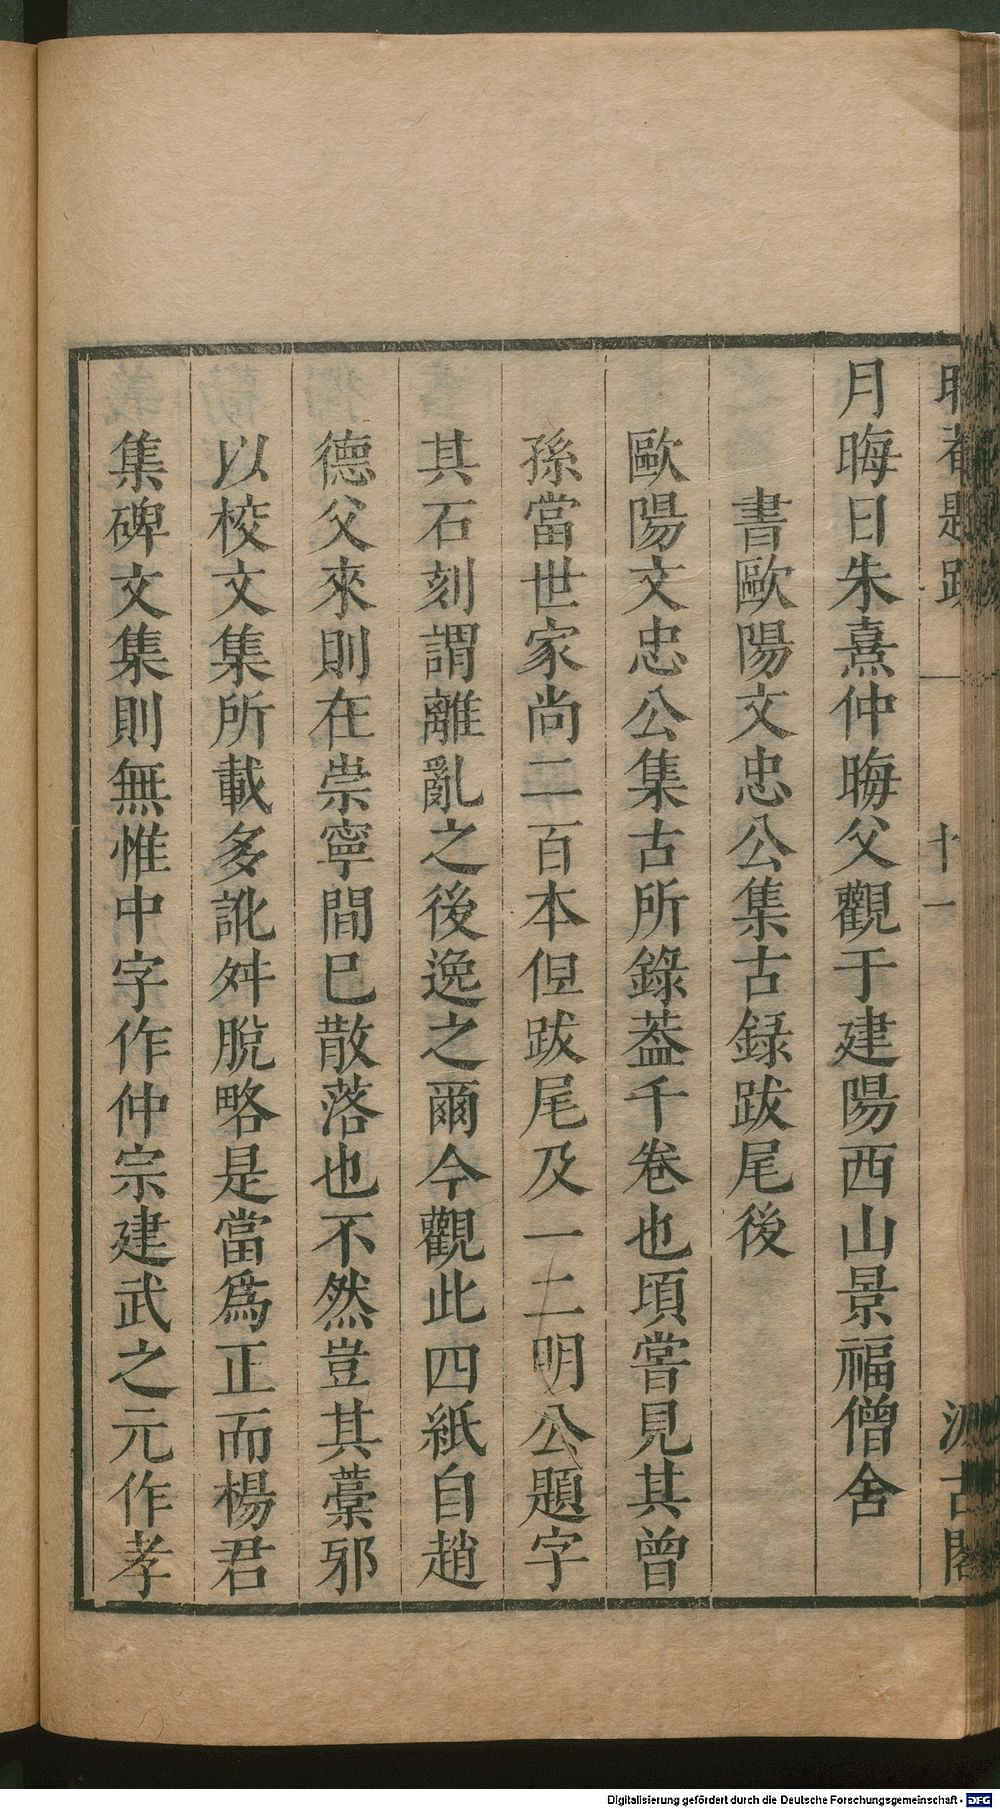 晦菴題跋 一 十一 汲古閣
月晦日朱熹仲晦父觀于建陽西山景福僧舍
書歐陽文忠公集古録跋尾後
歐陽文忠公集古所錄葢千卷也頃嘗見其曾
孫當世家尚二百本但跋尾及一二明公題字
其石刻謂離亂之後逸之爾今觀此四紙自趙
德父來則在崇寧間巳散落也不然豈其藁邪
以校文集所載多訛舛脫略是當爲正而楊君
集碑文集則無惟中字作仲宗建武之元作孝
Digitalisierung gefördert durch die Deutsche Forschungsgemeinschaft - DFG